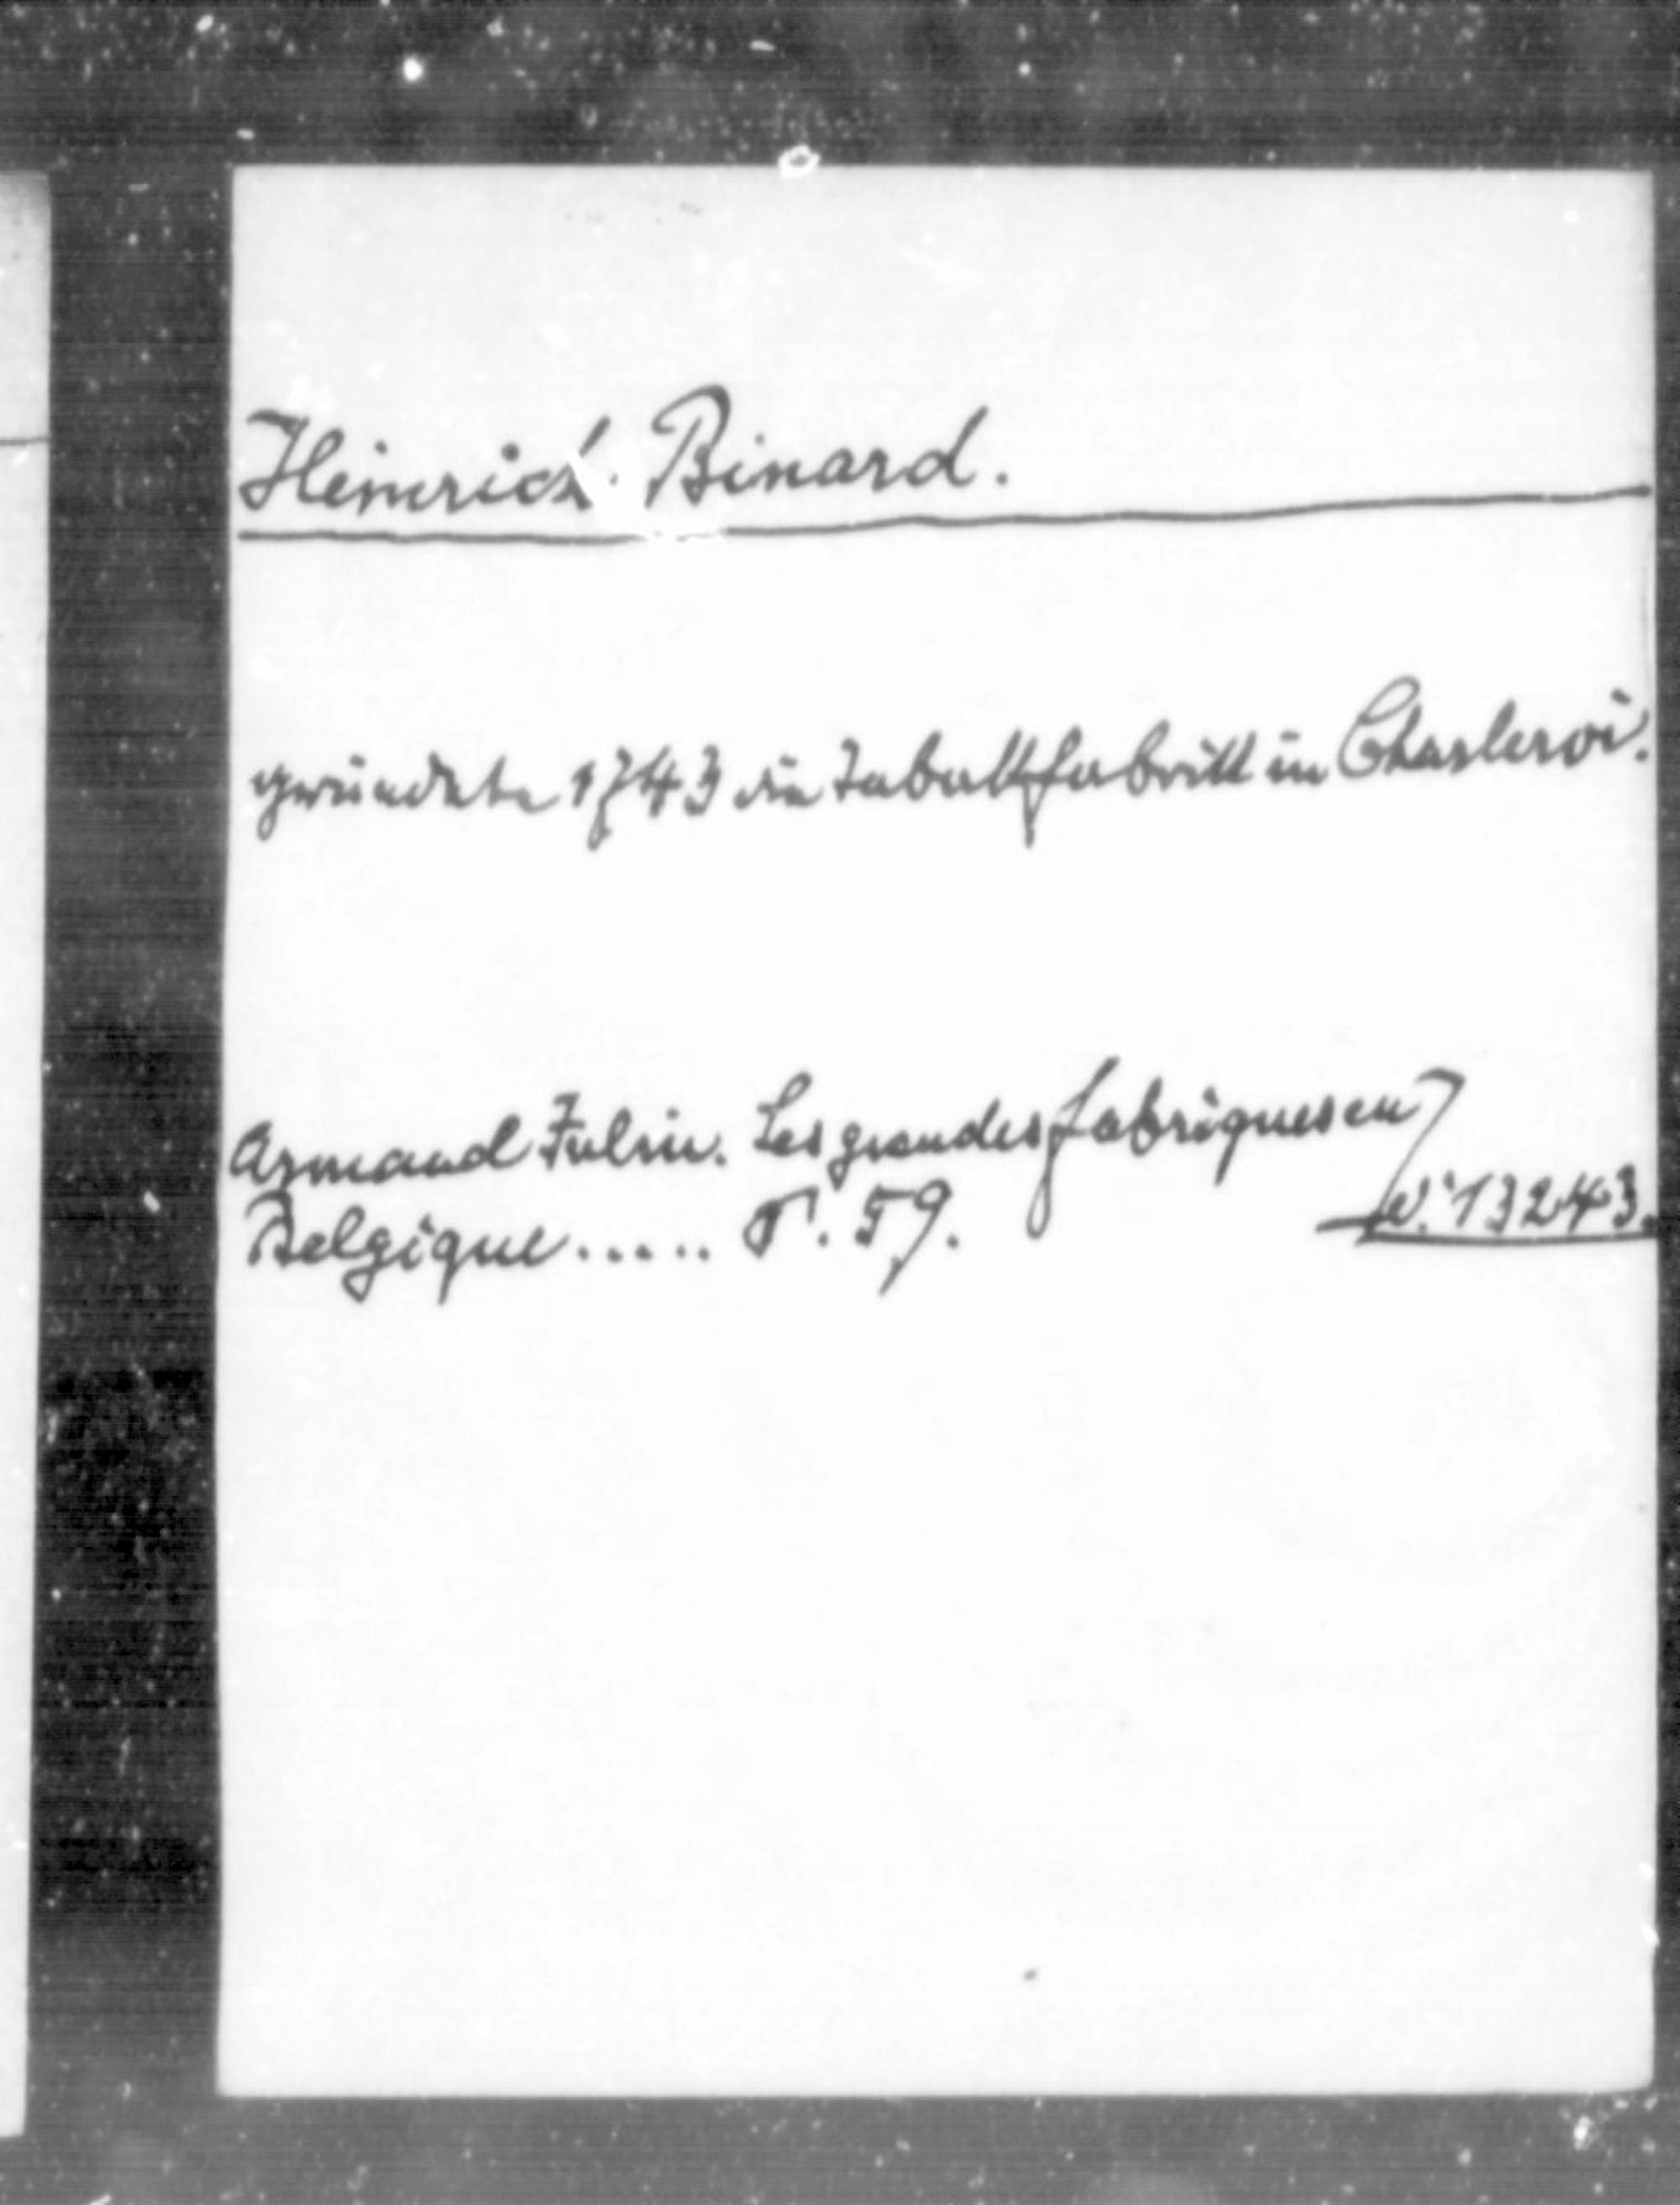 Heinrich Binard.
gründete 1743 die Tabakfabrik in Charleroi.
Armand Julin. Les grandes fabriques en
Belgique..... P. 59.
V. 13243.